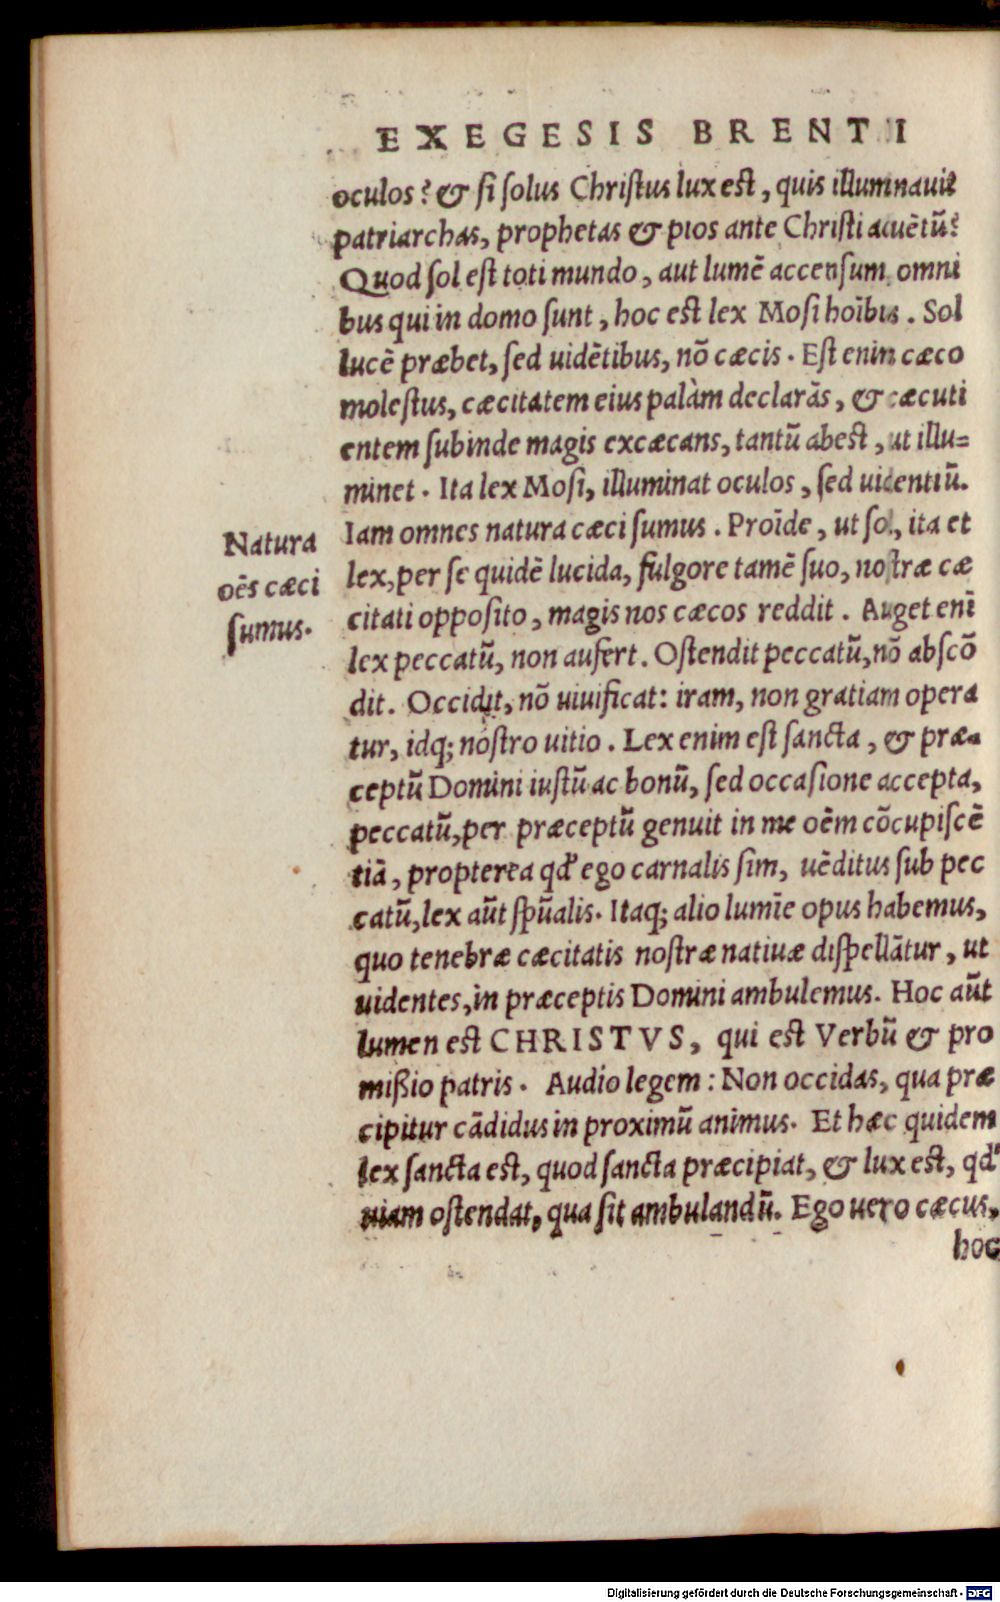 EXEGESIS BRENTII
oculos? & si solus Christus lux est, quis illuminauit
patriarchas, prophetas & pios ante Christi aduētū?
Quod sol est toti mundo, aut lumē accensum omni
bus qui in domo sunt, hoc est lex Mosi hoībus. Sol
lucē præbet, sed uidētibus, nō cæcis. Est enim cæco
molestus, cæcitatem eius palàm declarās, & cæcuti
entem subinde magis excæcans, tantū abest, ut illu=
minet. Ita lex Mosi, illuminat oculos, sed uidentiū.
Iam omnes natura cæci sumus. Proīde, ut sol, ita et
lex, per se quidē lucida, fulgore tamē suo, nostræ cæ
citati opposito, magis nos cæcos reddit. Auget enī
lex peccatū, non aufert. Ostendit peccatū, nō abscō
dit. Occidit, nō uiuificat: iram, non gratiam opera
tur, idq; nostro uitio. Lex enim est sancta, & præ=
ceptū Domini iustū ac bonū, sed occasione accepta,
peccatū, per præceptū genuit in me oēm cōcupiscē
tiā, propterea qđ ego carnalis sim, uēditus sub pec
catū, lex aūt spūalis. Itaq; alio lumīe opus habemus,
quo tenebræ cæcitatis nostræ natiuæ dispellātur, ut
uidentes, in præceptis Domini ambulemus. Hoc aūt
lumen est CHRISTVS, qui est Verbū & pro
mißio patris. Audio legem: Non occidas, qua præ
cipitur cādidus in proximū animus. Et hæc quidem
lex sancta est, quod sancta præcipiat, & lux est, qđ
uiam ostendat, qua sit ambulandū. Ego uero cæcus,
hoc
Natura
oēs cæci
sumus.
Digitalisierung gefördert durch die Deutsche Forschungsgemeinschaft - DFG